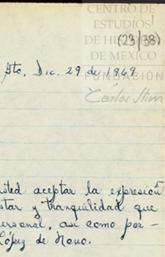 CENTRO DE
ESTUDIOS
DE HI
DE MEXICO
(23/38)
FUNDACIÓN
Carlos Slim
Gto., Dic. 29 de 1969
usted aceptar la expresión
star y tranquilidad que
personal, así como por-
López de Nava.